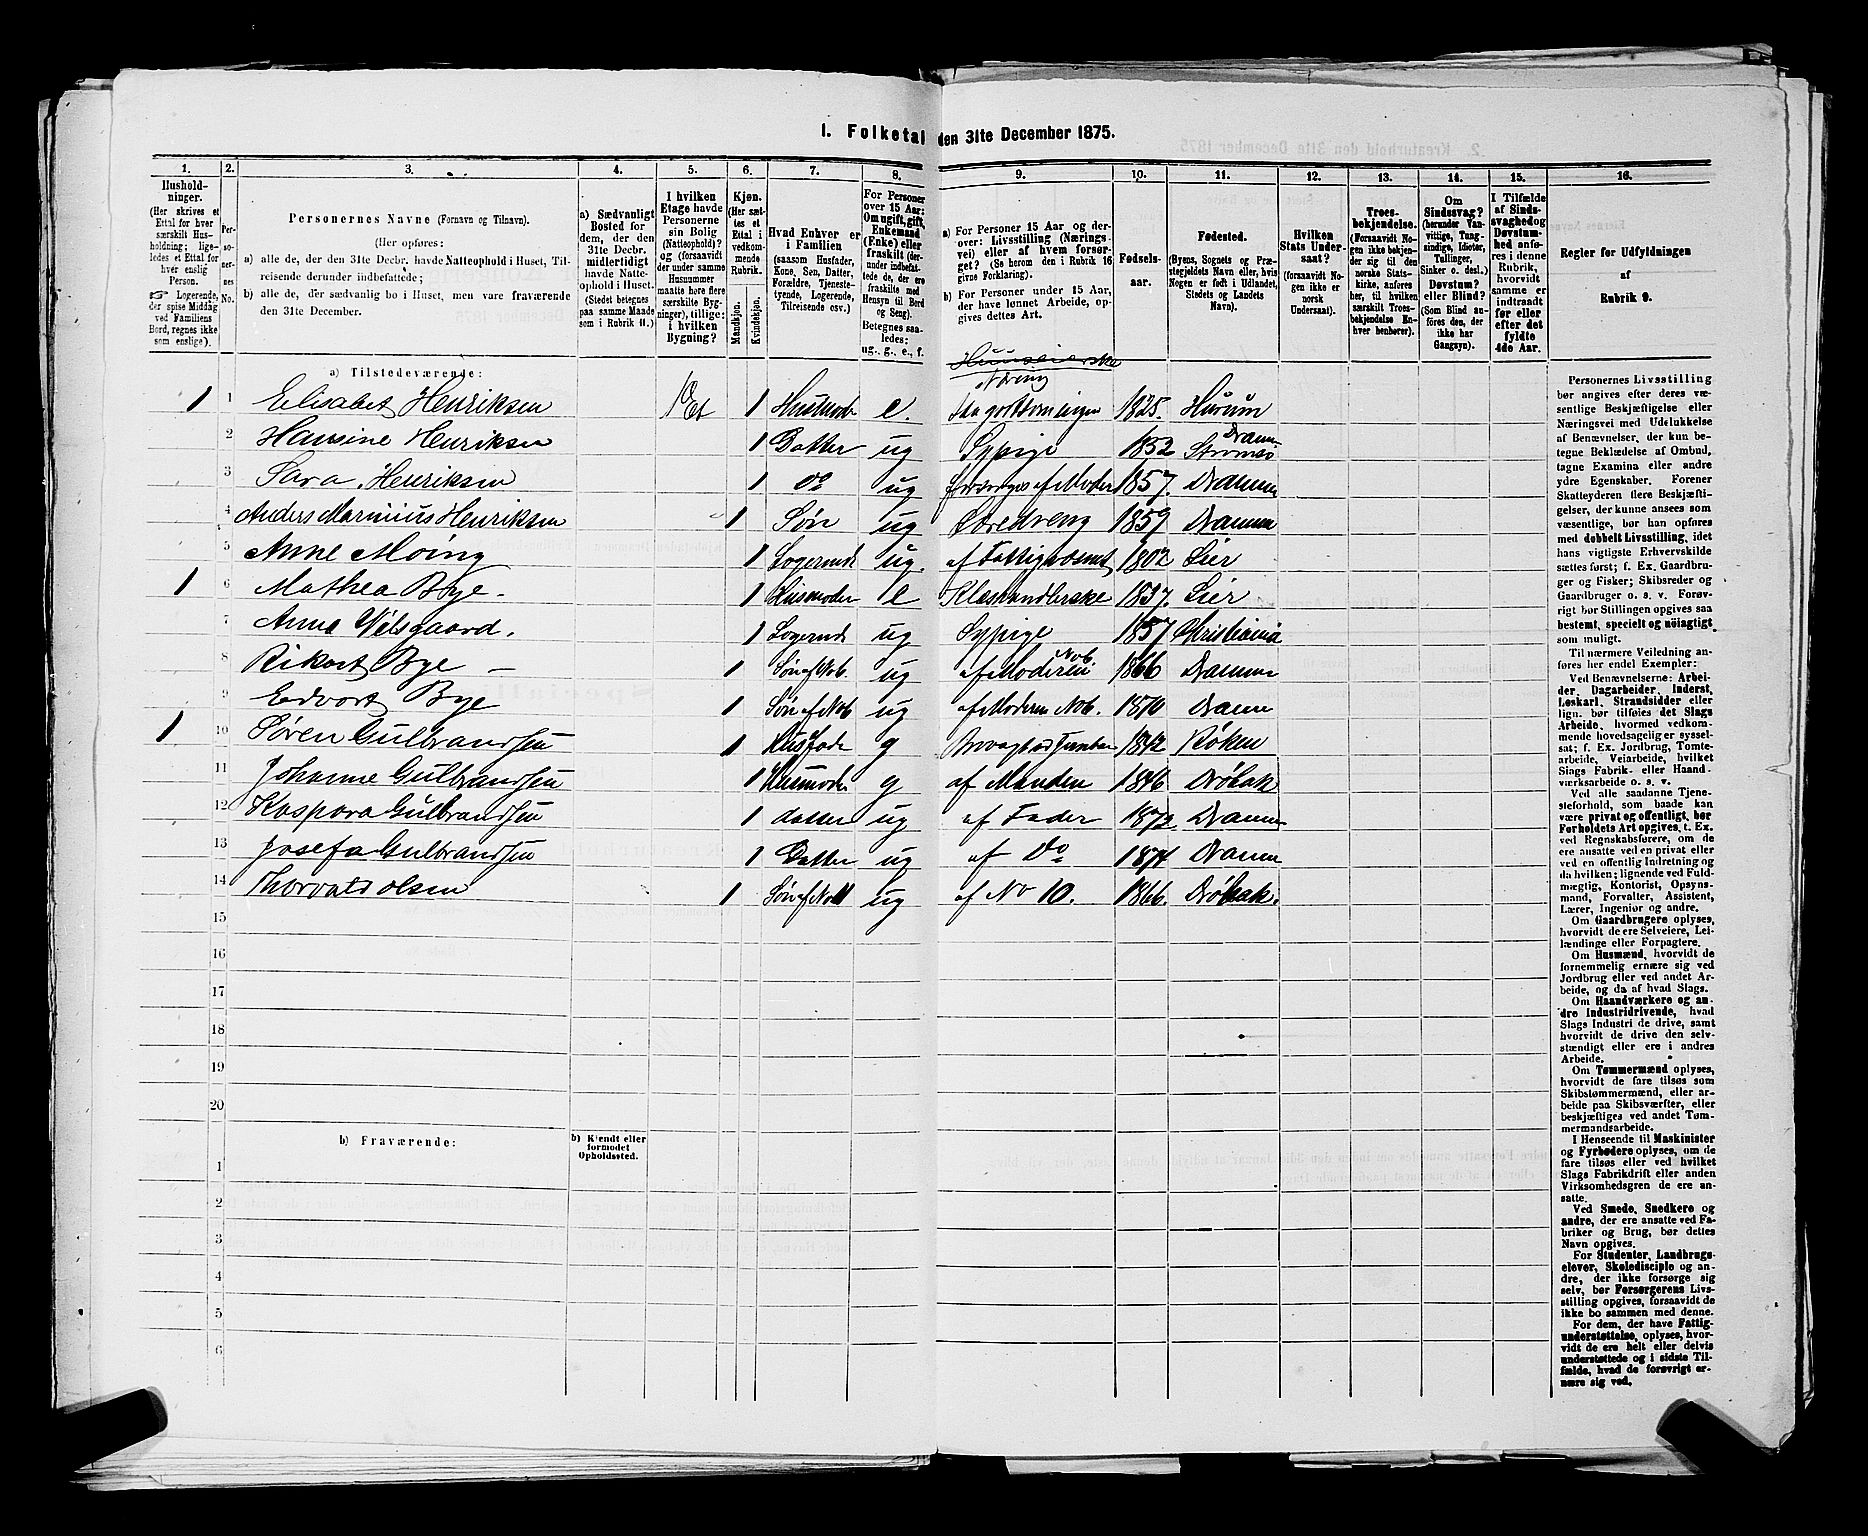 1. Folketal den 31te December 1875.
1. 2. 3. 4. 5. 6. 7. 8. 9. 10. 11. 12. 13. 14. 15. 16.
Husholdninger.
(Her skrives et
Ettal for hver
særskilt Husholdning;
ligeledes et Ettal for
hver enslig
Person.
☞ Logerende,
der spise Middag
ved Familiens
Bord, regnes ikke
som enslige).
Personernes No.
Personernes Navne (Fornavn og Tilnavn).
(Her opføres:
a) alle de, der den 31te Decbr. havde Natteophold i Huset, Tilreisende derunder indbefattede;
b) alle de, der sædvanlig bo i Huset, men vare fraværende
den 31te December.
a) Sædvanligt
Bosted for
dem, der den
31te Decbr.
midlertidigt
havde Natteophold i Huset.
(Stedet betegnes
paa samme Maade
som i Rubrik 11.)
I hvilken
Etage havde
Personerne
sin Bolig
(Natteophold)?
og (forsaavidt
der under samme
Husnummer
maatte høre flere
særskilte Bygninger), tillige:
i hvilken
Bygning?
Kjøn.
(Her sættes et
Ettal i
vedkommende
Rubrik.
Mandkjøn.
Kvindekjøn.
Hvad Enhver er
i Familien
(saasom Husfader,
Kone, Søn, Datter,
Forældre, Tjenestetyende, Logerende,
Tilreisende osv.)
For Personer
over 15 Aar:
Om ugift, gift,
Enkemand
(Enke) eller
fraskilt (derunder indbefattede de, der ere
fraskilte med
Hensyn til Bord
og Seng).
Betegnes saaledes:
ug., g., e., f.
a) For Personer 15 Aar og derover: Livsstilling (Næringsvei) eller af hvem forsørget? (Se herom den i Rubrik 16
givne Forklaring).
b) For Personer under 15 Aar,
der have lønnet Arbeide, opgives dettes Art.
Fødselsaar.
Fødested.
(Byens, Sognets og Præstegjeldets Navn eller, hvis
Nogen er født i Udlandet,
Stedets og Landets
Navn).
Hvilken
Stats Undersaat?
(forsaavidt Nogen ikke er
norsk
Undersaat).
Troesbekjendelse.
(Forsaavidt Nogen ikke bekjender sig til den
norske Statskirke, anføres
her, til hvilken
særskilt Troesbekjendelse Enhver henhører).
Om
Sindssvag?
(herunder Vanvittige, Tungsindige, Idioter,
Tullinger,
Sinker o. desl.)
Døvstum?
eller Blind?
(Som Blind anføres den, der
ikke har
Gangsyn).
I Tilfælde
af Sindssvaghed og
Døvstumhed anføres i denne
Rubrik,
hvorvidt
samme er
indtraadt
før eller
efter det
fyldte
4de Aar.
Regler for Udfyldningen
af
Rubrik 9.
a) Tilstedeværende:
Huuseierske
Næring
1 1 Elisabet Henriksen Et 1 Husmoder e. 1825. Hurum
2 Hansine Henriksen 1 Datter ug Sypige 1852 Dramm Strømsø
3 Sara Henriksen 1 do ug forsørges af Moder 1857. Dramm
4 Anders Marinius Henriksen 1 Søn ug 1859 Dramm
5 Anne Moing 1 Logerende ug. af Fattigvæsnet 1802 Lier
1 6 Mathea Bye 1 Husmoder e Kleshandlerske 1837. Lier
7 Anna Vilsgaard. 1 Logerende ug Sypige 1857 Christiania
8 Rikart Bye 1 Søn af No 6. ug af Moderen No 6 1866 Dramm
9 Edvort Bye 1 Søn af No 6 ug af Moderen No 6. 1870 Dramm
1 10 Søren Gulbrandsen 1 Husfader g 1842 Røken
11 Johanne Gulbrandsen 1 Husmoder g af Manden 1846 Drøbak
12 Kaspara Gulbrandsen 1 datter ug af Fader 1872 Dramm
13 Josefa Gulbrandsen 1 Datter ug af Do 1874 Dramm
14 Thorvald olsen 1 Søn af No 11 ug af No 10. 1866. Drøbak.
15
16
17
18
19
20
b) Fraværende:
b) Kjendt eller
formodet
Opholdssted.
1
2
3
4
5
6
Personernes Livsstilling
bør angives efter deres væsentlige Beskjæftigelse eller
Næringsvei med Udelukkelse
af Benævnelser, der kun betegne Beklædelse af Ombud,
tagne Examina eller andre
ydre Egenskaber. Forener
Skatteyderen flere Beskjæftigelser, der kunne ansees som
væsentlige, bør han opføres
med dobbelt Livsstilling, idet
hans vigtigste Erhvervskilde
sættes først; f. Ex. Gaardbruger og Fisker; Skibsreder og
Gaardbruger o. s. v. Forøvrigt bør Stillingen opgives saa
bestemt, specielt og nöiagtigt
som muligt.
Til nærmere Veiledning anføres her endel Exempler:
Ved Benævnelserne: Arbeider, Dagarbeider, Inderst,
Løskarl, Strandsidder eller
lign. bør tilføies det Slags
Arbeide, hvormed vedkommende hovedsagelig er sysselsat; f. Ex. Jordbrug, Tomtearbeide, Veiarbeide, hvilket
Slags Fabrik- eller Haandværksarbeide o. s. v.
Ved alle saadanne Tjenesteforhold, som baade kan
være privat og offentligt, bør
Forholdets Art opgives, t. Ex.
ved Regnskabsførere, om de
ere ansatte ved en privat eller
ved en offentlig Indretning og
da hvilken; lignende ved Fuldmægtig, Kontorist, Opsynsmand, Forvalter, Assistent,
Lærer, Ingeniør og andre.
Om Gaardbrugere oplyses,
hvorvidt de ere Selveiere, Leilændinge eller Forpagtere.
Om Husmænd, hvorvidt de
fornemmelig ernære sig ved
Jordbrug eller ved andet Arbeide, og da af hvad Slags.
Om Haandværkere og andre Industridrivende, hvad
Slags Industri de drive, samt
hvorvidt de drive den selvstændigt eller ere i andres
Arbeide.
Om Tømmermænd oplyses,
hvorvidt de fare tilsøs som
Skibstømmermænd, eller arbeide paa Skibsværfter, eller
beskjæftiges ved andet Tømmermandsarbeide.
I Henseende til Maskinister
og Fyrbødere oplyses, om de
fare tilsøs eller ved hvilket
Slags Fabrikdrift eller anden
Virksomhedsgren de ere ansatte.
Ved Smede, Snedkere og
andre, der ere ansatte ved Fabriker og Brug, bør dettes
Navn opgives.
For Studenter, Landbrugselever, Skoledisciple og andre, der ikke forsørge sig
selv, bør Forsørgerens Livsstilling opgives, forsaavidt de
ikke bo sammen med denne.
For dem, der have Fattigunderstøttelse, oplyses, hvorvidt de ere helt eller delvis
understøttede og i sidste Tilfælde, hvad de forøvrigt ernære sig ved.